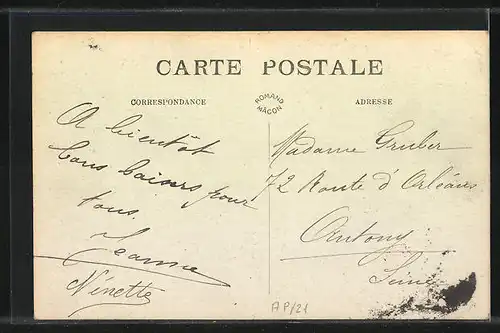 CARTE POSTALE
CORRESPONDANCE
ROMAND
MÂCON
ADRESSE
A bientôt
bons baisers pour
tous.
Jeanne
Nénette
Madame Gruber
72 Route d'Orléans
Antony
Seine
AP/21